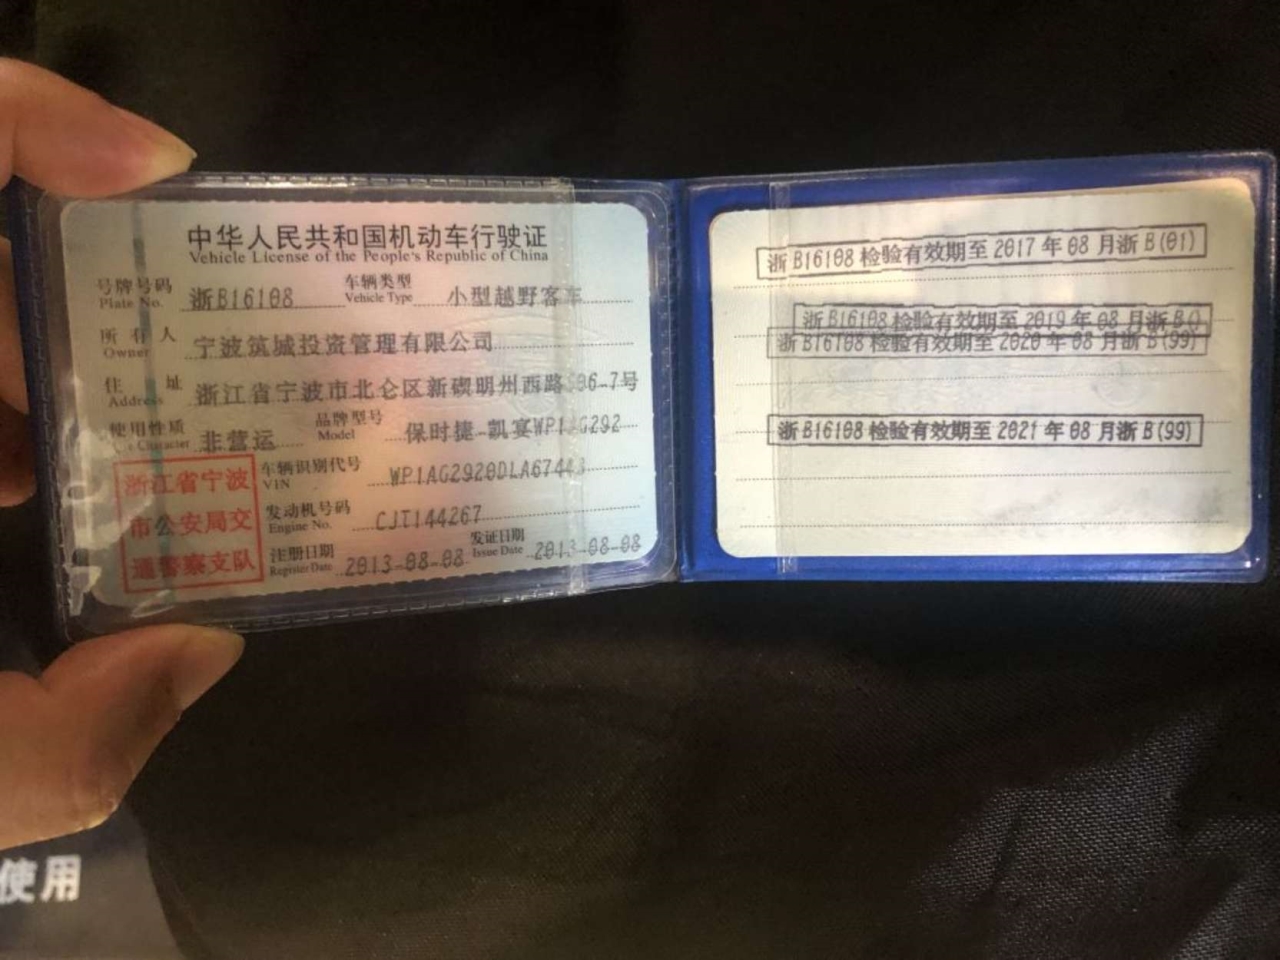 中华人民共和国机动车行驶证
Vehicle License of the People's Republic of China
号牌号码 浙B16108 车辆类型 小型越野客车
Plate No. Vehicle Type
所有人 宁波筑城投资管理有限公司
Owner
住址 浙江省宁波市北仑区新碶明州西路 06-7号
Address
使用性质 非营运 品牌型号 保时捷-凯宴WP1AG292
Character Model
浙江省宁波
市公安局交
通警察支队
车辆识别代号 WP1AG2920DLA67443
VIN
发动机号码 CJT144267
Engine No.
注册日期 2013-08-08 发证日期 2013-08-08
Register Date Issue Date
浙B16108检验有效期至2017年08月浙B(01)
浙B16108检验有效期至2019年08月浙B()
浙B16108检验有效期至2020年08月浙B(99)
浙B16108检验有效期至2021年08月浙B(99)
使用